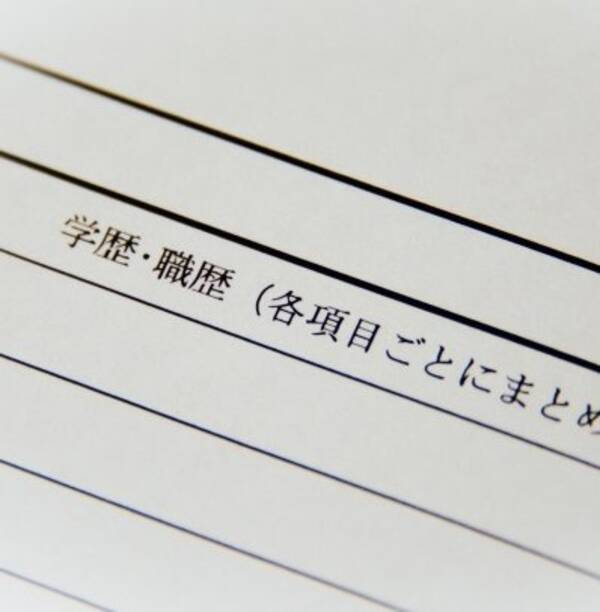 学歴・職歴（各項目ごとにまとめ